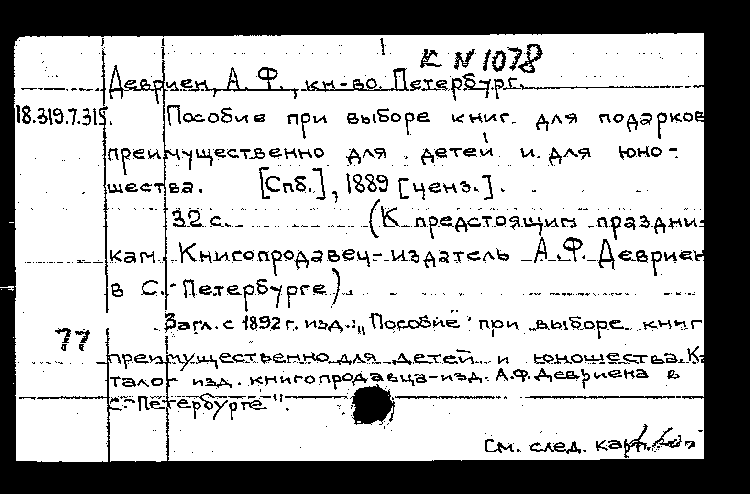 К N 1078
Девриен, А. Ф., кн-во. Петербург.
18.319.7.315. Пособие при выборе книг для подарков
преимущественно для детей и для юно-
шества. [Спб.], 1889 [ценз.].
32 с. (К предстоящим праздни-
кам. Книгопродавец-издатель А.Ф. Девриен
в С.-Петербурге).
Загл. с 1892 г. изд.: „Пособие при выборе книг
77
преимущественно для детей и юношества. Ка
талог изд. книгопродавца-изд. А.Ф. Девриена в
С.-Петербурге".
См. след. карт.